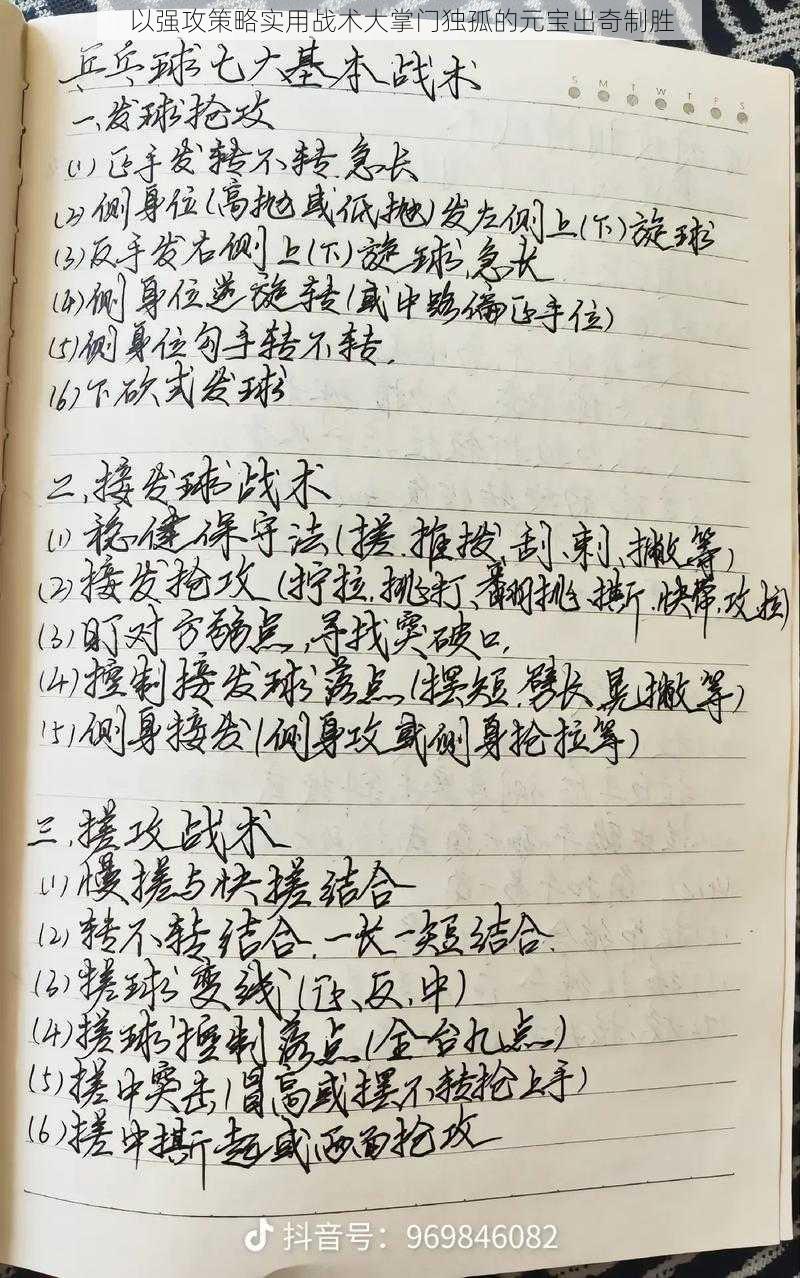 以强攻策略实用战术大掌门独孤的元宝出奇制胜
乒乓球七大基本战术
S M T W T F S
一、发球抢攻
(1)正手发转不转、急长
(2)侧身位(高抛或低抛)发左侧上(下)旋球
(3)反手发右侧上(下)旋球、急长
(4)侧身位逆旋转(或中路偏正手位)
(5)侧身位勾手转不转.
(6)下砍式发球
二、接发球战术
(1)稳健保守法(搓、推拨、刮、刺、撇等)
(2)接发抢攻(拧拉、挑打、翻挑、撕、快带、攻拉)
(3)盯对方弱点,寻找突破口.
(4)控制接发球落点(摆短、劈长、晃撇等)
(5)侧身接发(侧身攻或侧身抢拉等)
三、搓攻战术
(1)慢搓与快搓结合
(2)转不转结合、一长一短结合.
(3)搓球变线(正、反、中)
(4)搓球控制落点(全台九点)
(5)搓中突击(冒高或摆不转抢上手)
(6)搓中撕起或两面抢攻
抖音号：969846082